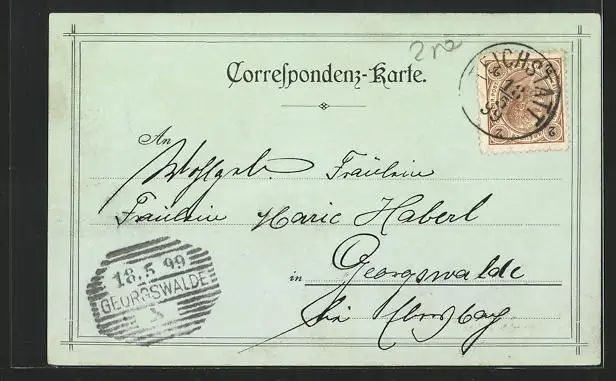 2 ne
Correspondenz-Karte.
LEICHSTATT
18
5
99
2 2
An
Wohlgeb. Fräulein
Fräulein Marie Haberl
in Georgswalde
18.5.99
GEORGSWALDE